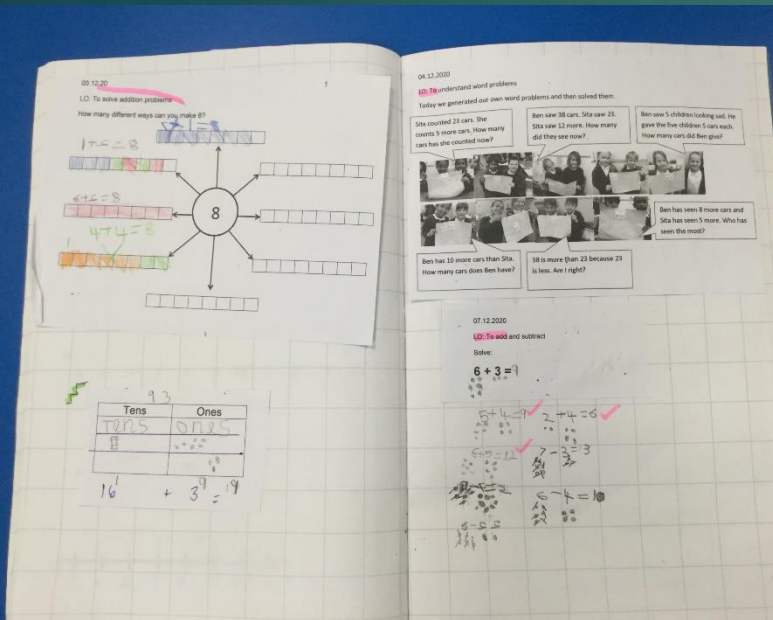 03.12.20
1
LO: To solve addition problems
How many different ways can you make 8?
8
4+4=8
93
Tens Ones
Tens ones
16 + 3 = 19
04.12.2020
LO: To understand word problems
Today we generated our own word problems and then solved them.
Sita counted 23 cars. She
counts 5 more cars. How many
cars has she counted now?
Ben saw 38 cars. Sita saw 23.
Sita saw 12 more. How many
did they see now?
Ben saw 5 children looking sad. He
gave the five children 5 cars each.
How many cars did Ben give?
Ben has seen 8 more cars and
Sita has seen 5 more. Who has
seen the most?
Ben has 10 more cars than Sita.
How many cars does Ben have?
38 is more than 23 because 23
is less. Am I right?
07.12.2020
LO: To add and subtract
Solve:
6 + 3 = 9
5+4=9
2+4=6
7-3=3
6-4=10